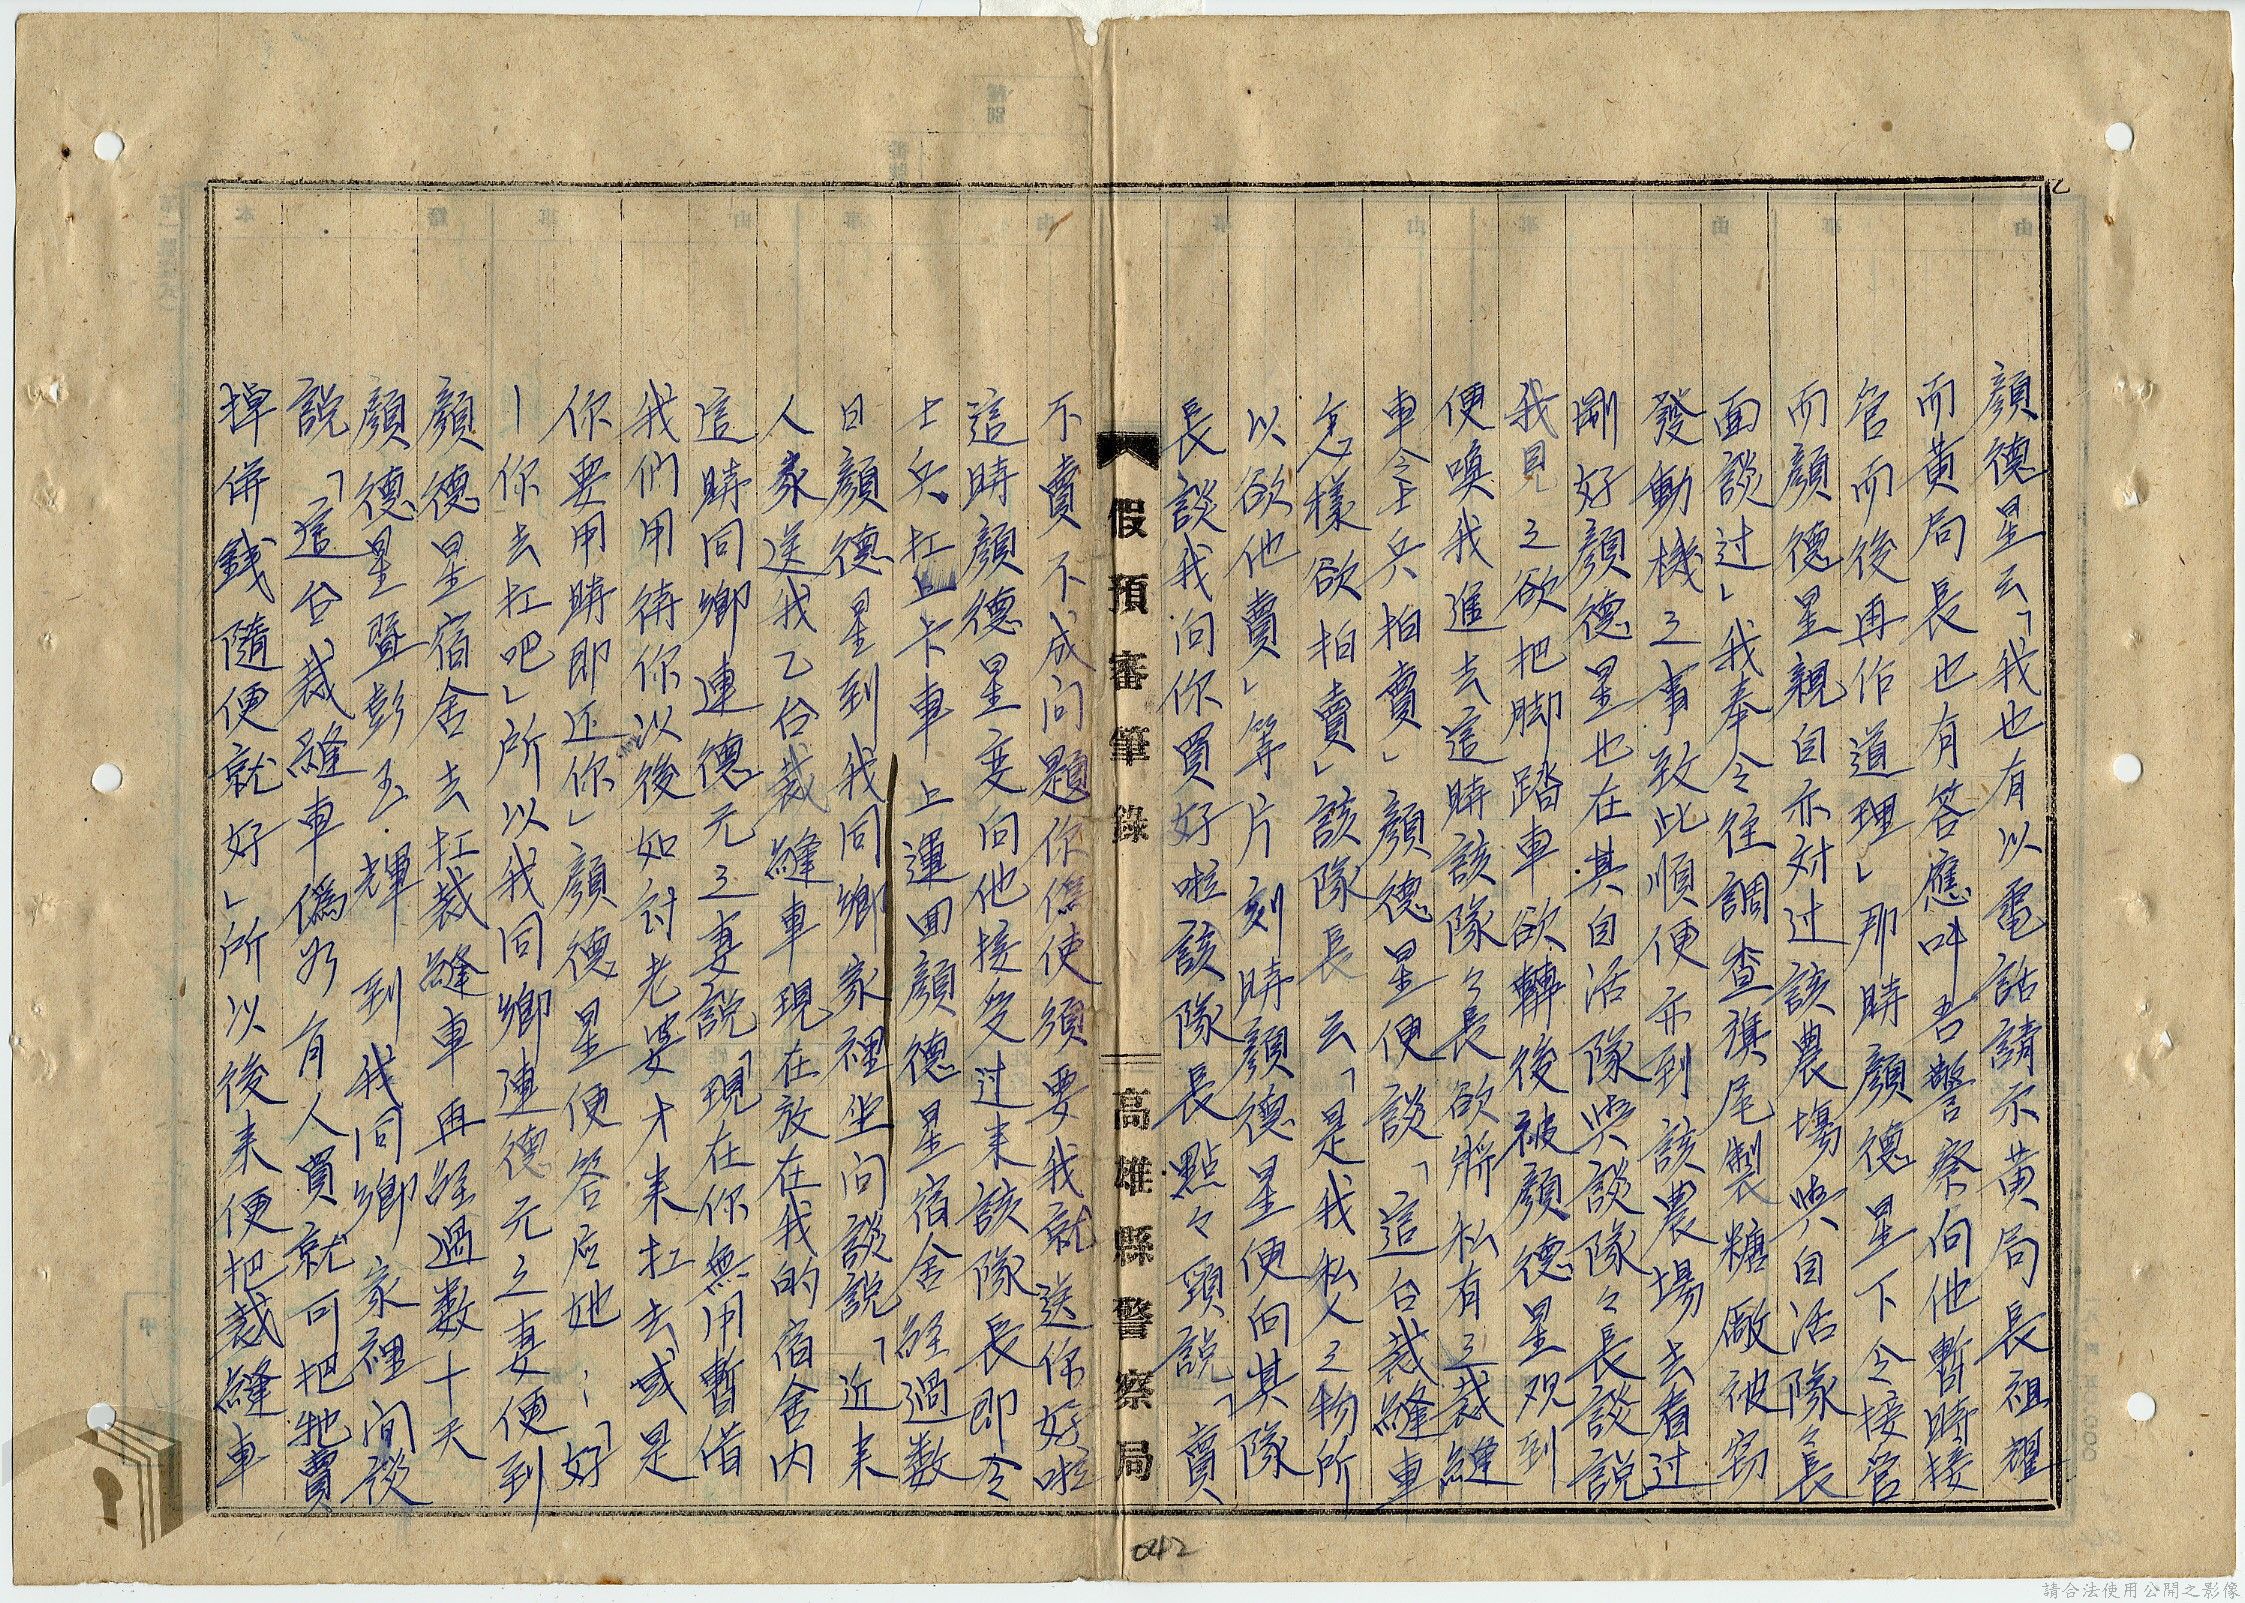 顏德星云「我也有以電話請示黃局長祖耀
而黃局長也有答應叫吾警察向他暫時接
管而後再作道理」那時顏德星下令接管
而顏德星親自亦対过該農場與自活隊々長
面談过」我奉令往調查旗尾製糖廠被窃
發動機之事致此順便亦到該農場去看过
剛好顏德星也在其自活隊與談隊々長談說
我見之欲把脚踏車欲轉後被顏德星观到
便喚我進去這時該隊々長欲將私有之裁縫
車令士兵拍賣」顏德星便談「這台裁縫車
怎樣欲拍賣」該隊長云「是我私人之物所
以欲他賣」等片刻時顏德星便向其隊
長談我向你買好啦該隊長點々頭說「賣
假預審筆錄
高雄縣警察局
不賣不成问題你僞使須要我就送你好啦
這時顏德星变向他接受过来該隊長即令
士兵扛上卡車上運回顏德星宿舍経過数
日顏德星到我同鄉家裡坐向談說「近来
人家送我乙台裁縫車現在放在我的宿舍内
這時同鄉連德元之妻說「現在你無用暫借
我們用待你以後如討老婆才来扛去或是
你要用時即还你」顏德星便答应她：「好
ー你去扛吧」所以我同鄉連德元之妻便到
顏德星宿舍去扛裁縫車再経過数十天
顏德星暨彭玉輝到我同鄉家裡间談
說「這台裁縫車僞为有人買就可把牠賣
掉併錢隨便就好」所以後来便把裁縫車
042
請合法使用公開之影像